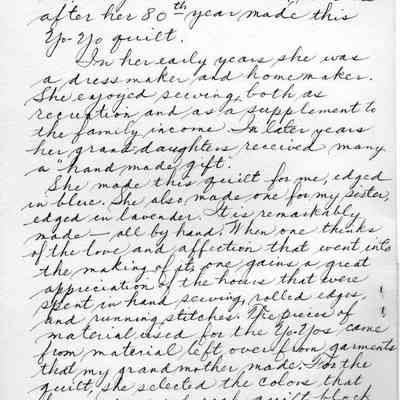 after her 80th year made this
Yo-Yo quilt.
In her early years she was
a dressmaker and homemaker.
She enjoyed sewing, both as
recreation and as a supplement to
the family income. In later years
her granddaughters received many
a "hand made gift".
She made this quilt for me, edged
in blue. She also made one for my sister,
edged in lavender. It is remarkably
made — all by hand. When one thinks
of the love and affection that went into
the making of it, one gains a great
appreciation of the hours that were
spent in hand sewing, rolled edges,
and running stitches. The pieces of
material used for the Yo-Yos came
from material left over from garments
that my grandmother made. For the
quilt, she selected the colors that
quilt block